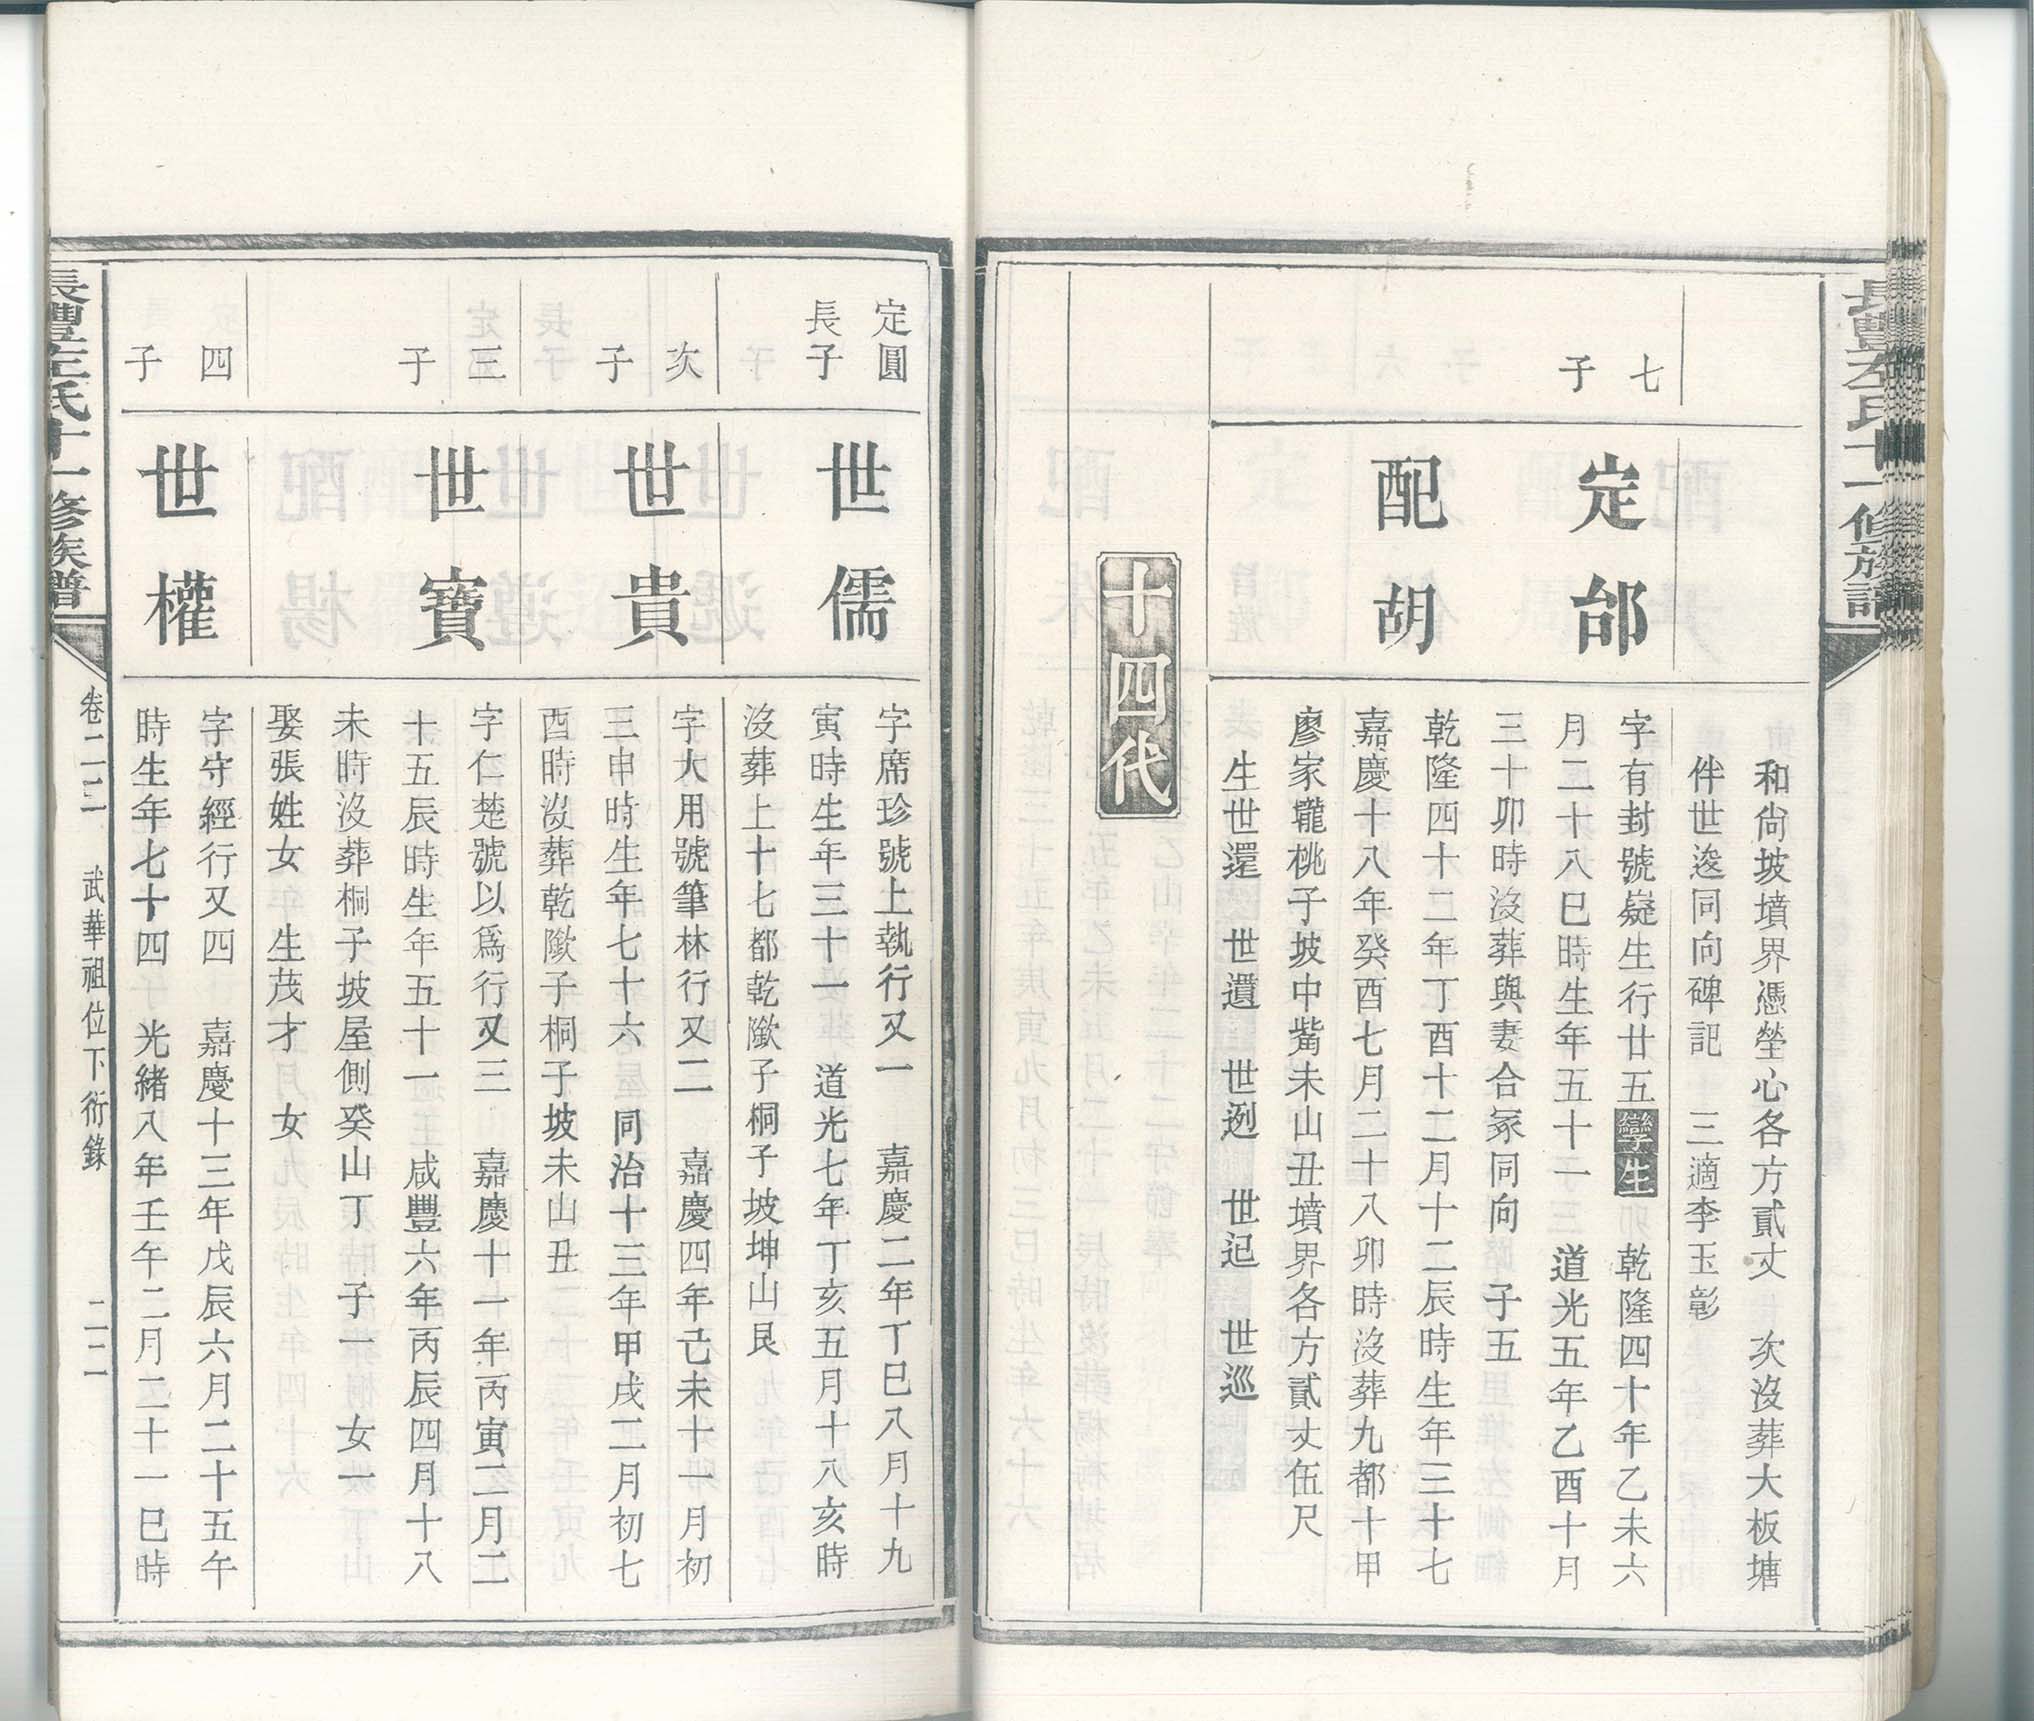 長豐左氏十一修族譜
和尙坡墳界憑塋心各方貳丈 次沒葬大板塘
伴世逡同向碑記 三適李玉彰
七
子
定邰
字有封號嶷生行廿五孿生 乾隆四十年乙未六
月二十八巳時生年五十一 道光五年乙酉十月
三十卯時沒葬與妻合冢同向 子五
配胡
乾隆四十二年丁酉十二月十二辰時生年三十七
嘉慶十八年癸酉七月二十八卯時沒葬九都十甲
廖家壠桃子坡中觜未山丑墳界各方貳丈伍尺
生世還 世遺 世迾 世迡 世巡
十四代
定圓
長子
世儒
字席珍號上執行又一 嘉慶二年丁巳八月十九
寅時生年三十一 道光七年丁亥五月十八亥時
沒葬上十七都乾隞子桐子坡坤山艮
次
子
世貴
字大用號筆林行又二 嘉慶四年己未十一月初
三申時生年七十六 同治十三年甲戌二月初七
酉時沒葬乾隞子桐子坡未山丑
三
子
世寶
字仁楚號以爲行又三 嘉慶十一年丙寅二月二
十五辰時生年五十一 咸豐六年丙辰四月十八
未時沒葬桐子坡屋側癸山丁 子一 女一
娶張姓女 生茂才 女
四
子
世權
字守經行又四 嘉慶十三年戊辰六月二十五午
時生年七十四 光緒八年壬午二月二十一巳時
長豐左氏十一修族譜
卷二三 武華祖位下衍錄 二二